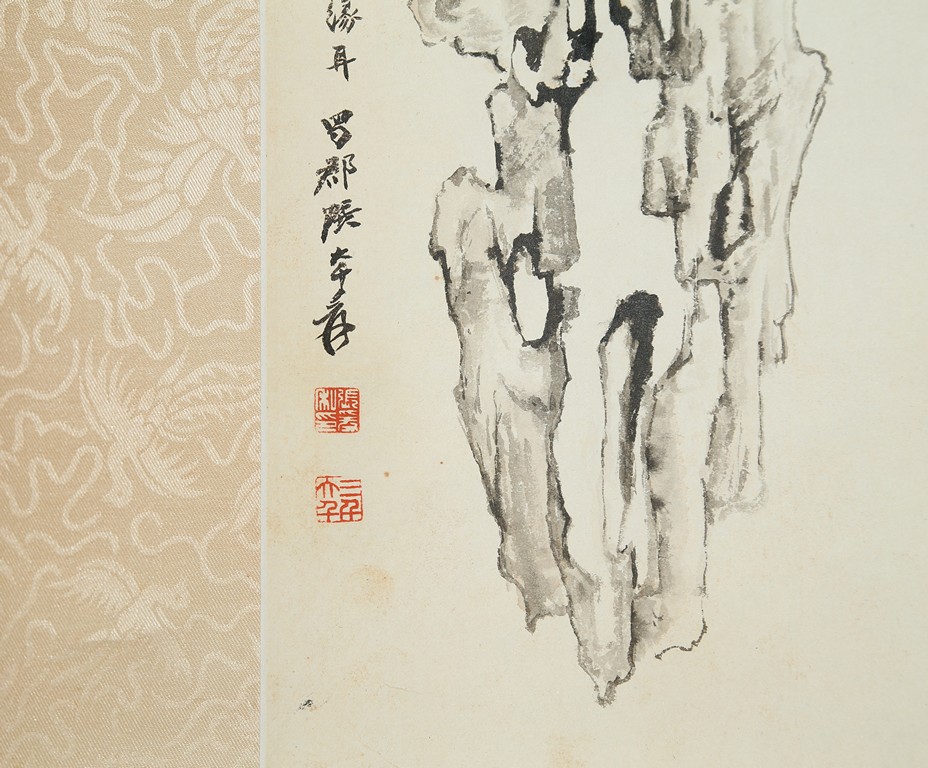 緣耳 蜀郡張大千爰
張爰私印
三千大千